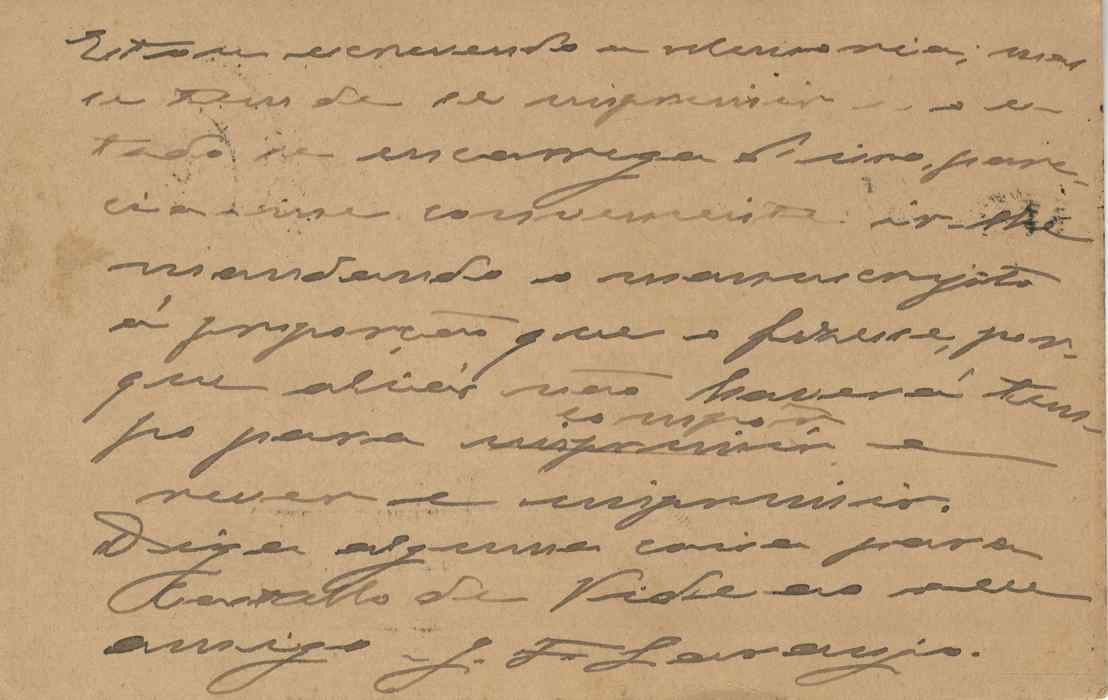 Estou escrevendo a memoria; mas
se tem de se imprimir e o es-
tado se encarrega d'isso, pare-
cia-me conveniente ir-lhe
mandando o manuscripto
á proporção que o fizesse, por-
que aliás não haverá tem-
po para compôr e
rever e imprimir.
Diga alguma coisa para
Castello de Vide ao seu
amigo J. F. Laranjo.